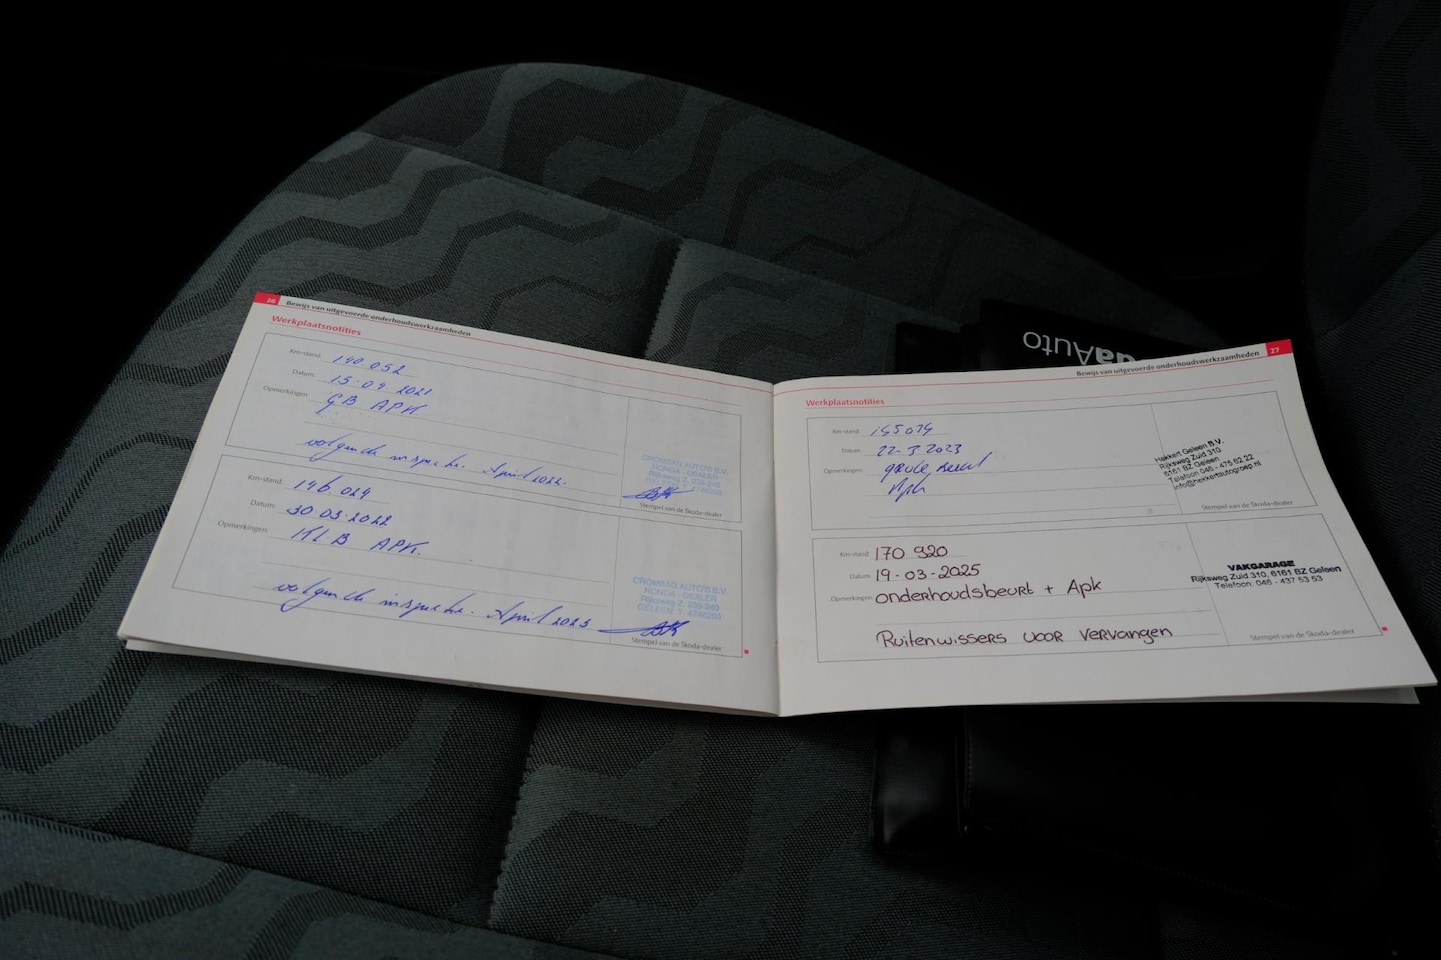 26 Bewijs van uitgevoerde onderhoudswerkzaamheden
Werkplaatsnotities
Km-stand: 140.052
Datum: 15.04.2021
Opmerkingen: GB APK
volgende inspectie. April 2022.
CROMBAG AUTO'S B.V.
HONDA - DEALER
Rijksweg Z. 238-240
Stempel van de Škoda-dealer
Km-stand: 146.024
Datum: 30.03.2022
Opmerkingen: KLB APK.
volgende inspectie. April 2023
CROMBAG AUTO'S B.V.
HONDA - DEALER
Rijksweg Z. 238-240
Stempel van de Škoda-dealer
daAuto
Bewijs van uitgevoerde onderhoudswerkzaamheden 27
Werkplaatsnotities
Km-stand:
Datum: 22-3 2023
Opmerkingen: grote beurt
Apk
Hekkert Geleen B.V.
Rijksweg Zuid 310
6161 BZ Geleen
Telefoon 046 - 475 82 22
info@hekkertautogroep.nl
Stempel van de Škoda-dealer
Km-stand: 170 920
Datum: 19-03-2025
Opmerkingen: onderhoudsbeurt + Apk
Ruitenwissers voor vervangen
VAKGARAGE
Rijksweg Zuid 310, 6161 BZ Geleen
Telefoon. 046 - 437 53 53
Stempel van de Škoda-dealer